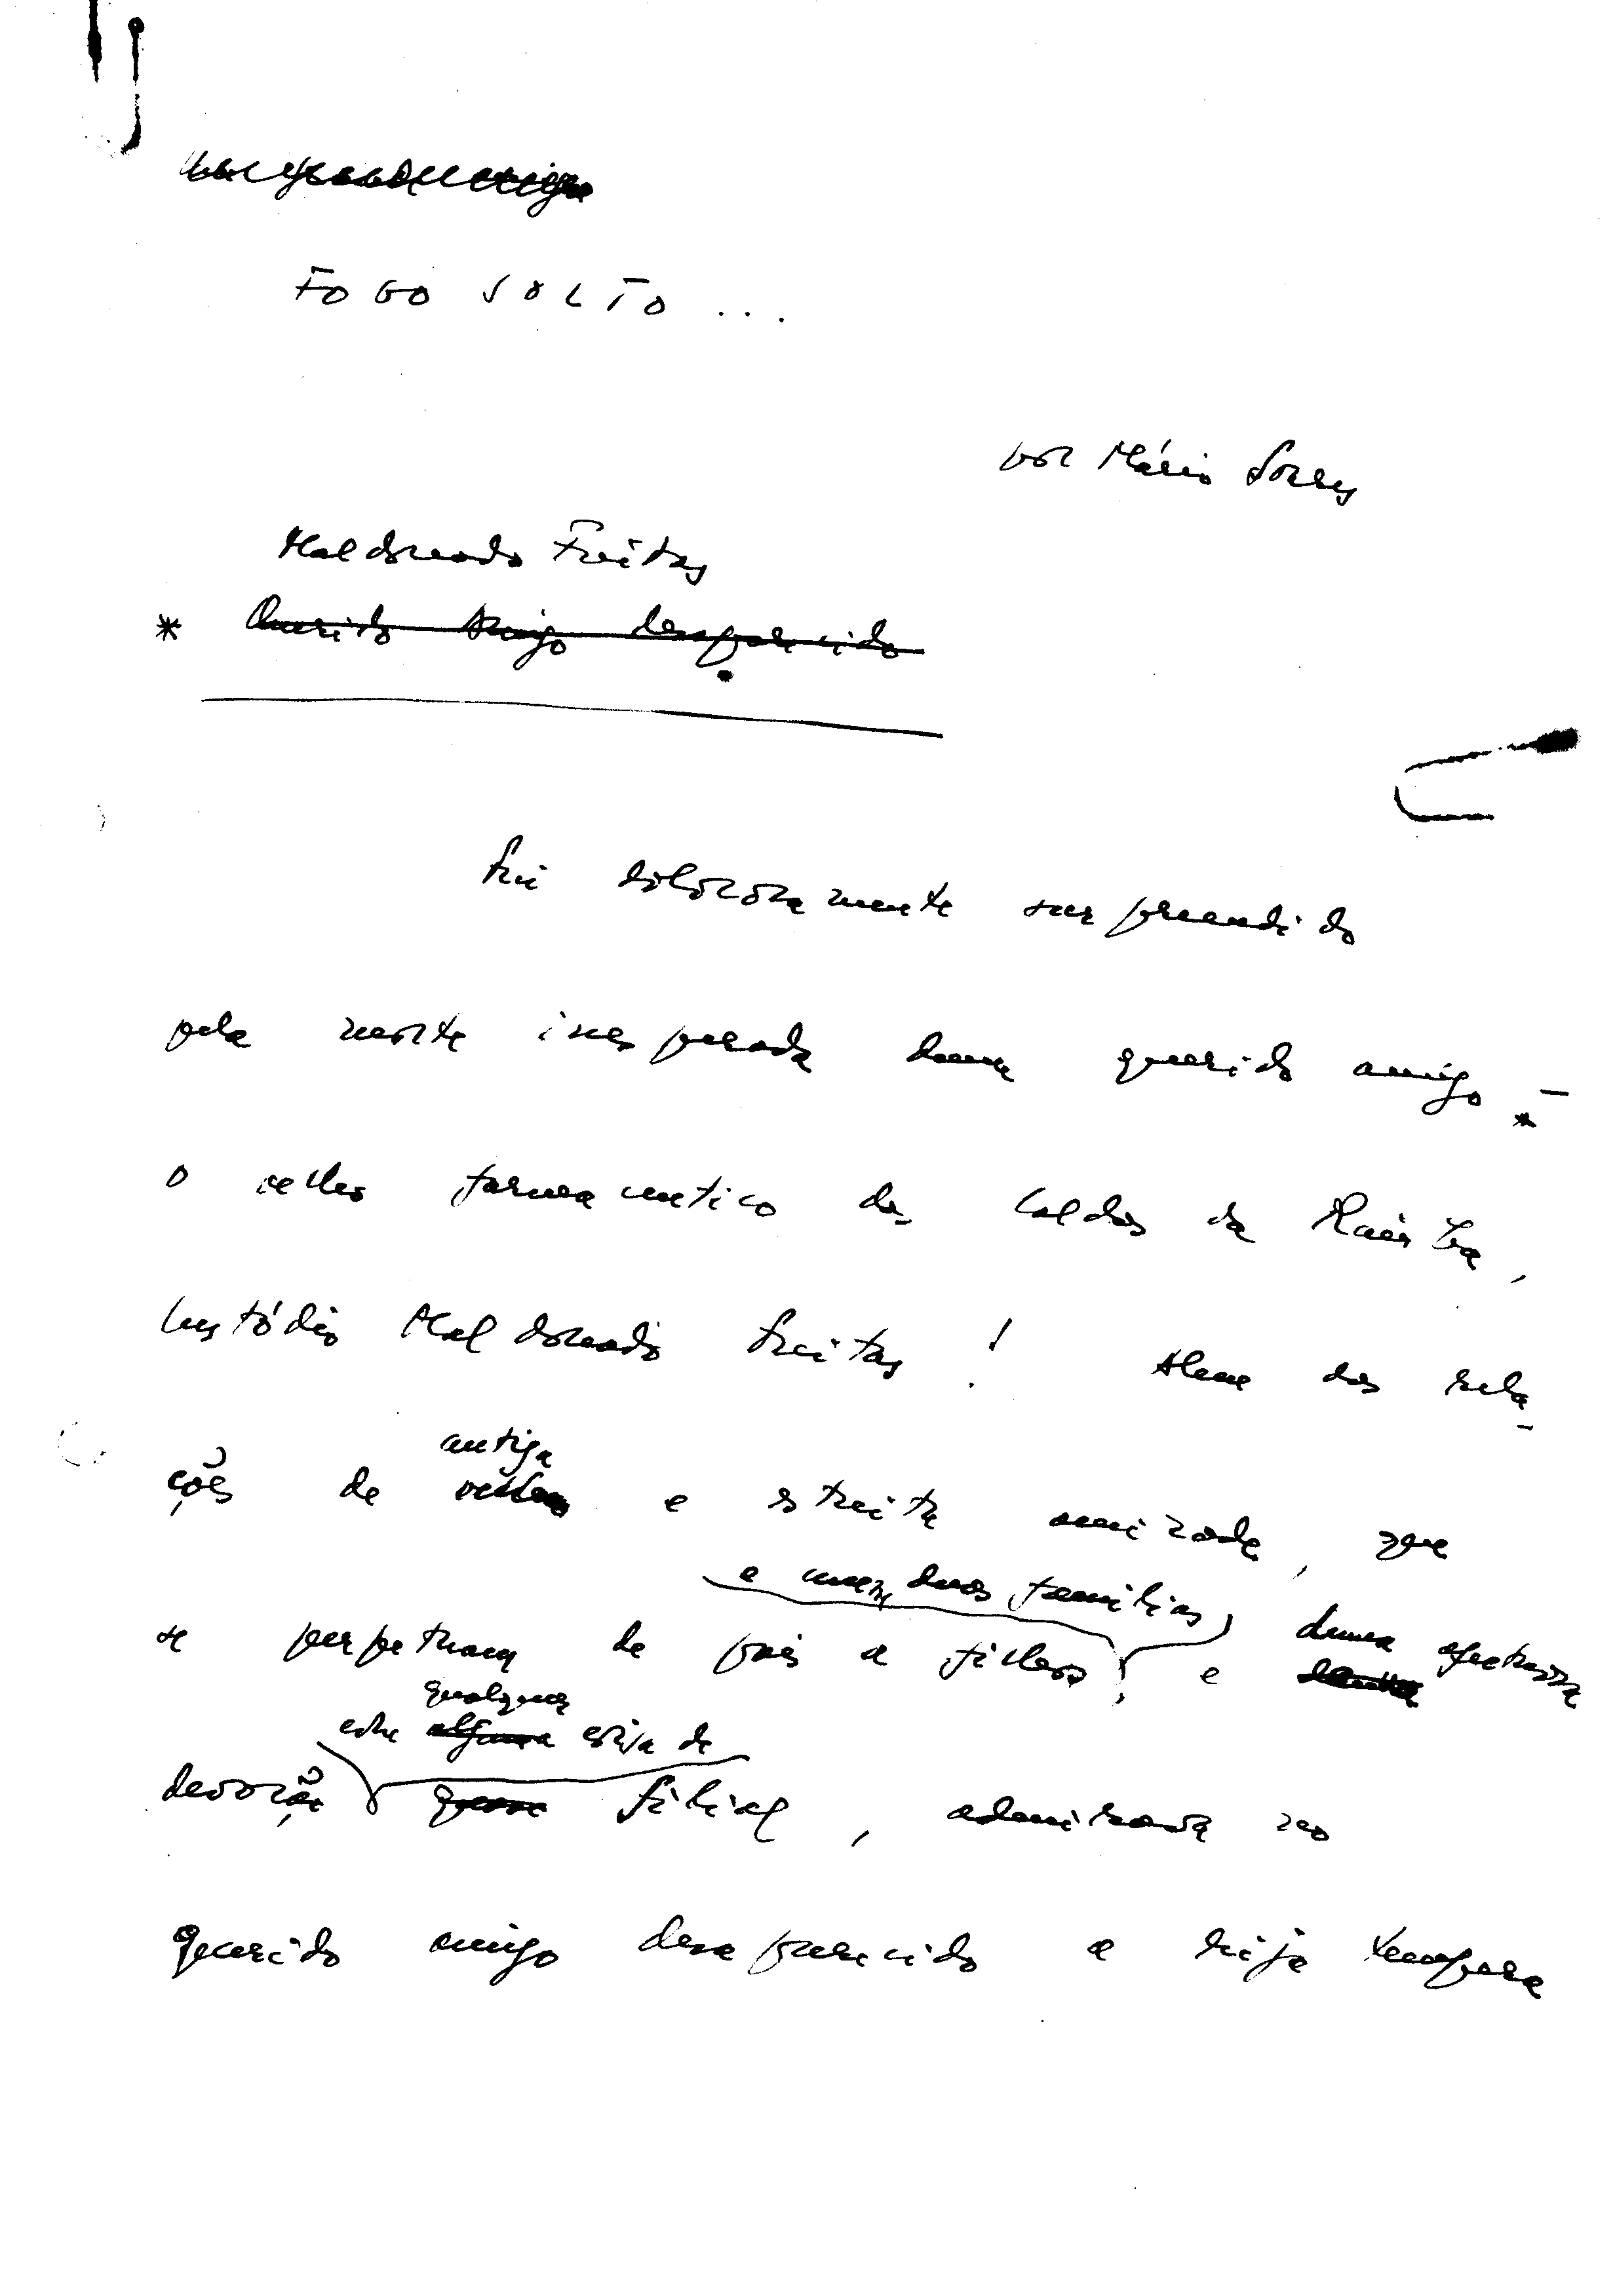 FOGO SOLTO ...
por Mário Soares
Maldonado Freitas
* Querido Amigo desaparecido
Fui dolorosamente surpreendido
pela morte inesperada dum querido amigo * -
o velho farmacêutico das Caldas da Rainha,
Custódio Maldonado Freitas! Alem das rela-
antiga
ções de e estreita amizade, que
e duas famílias, duma afectuosa
se perpetuam de pais a filhos, e
qualquer
alguma coisa de
devoção quase filial, admirava no
querido amigo desaparecido a rija tempera